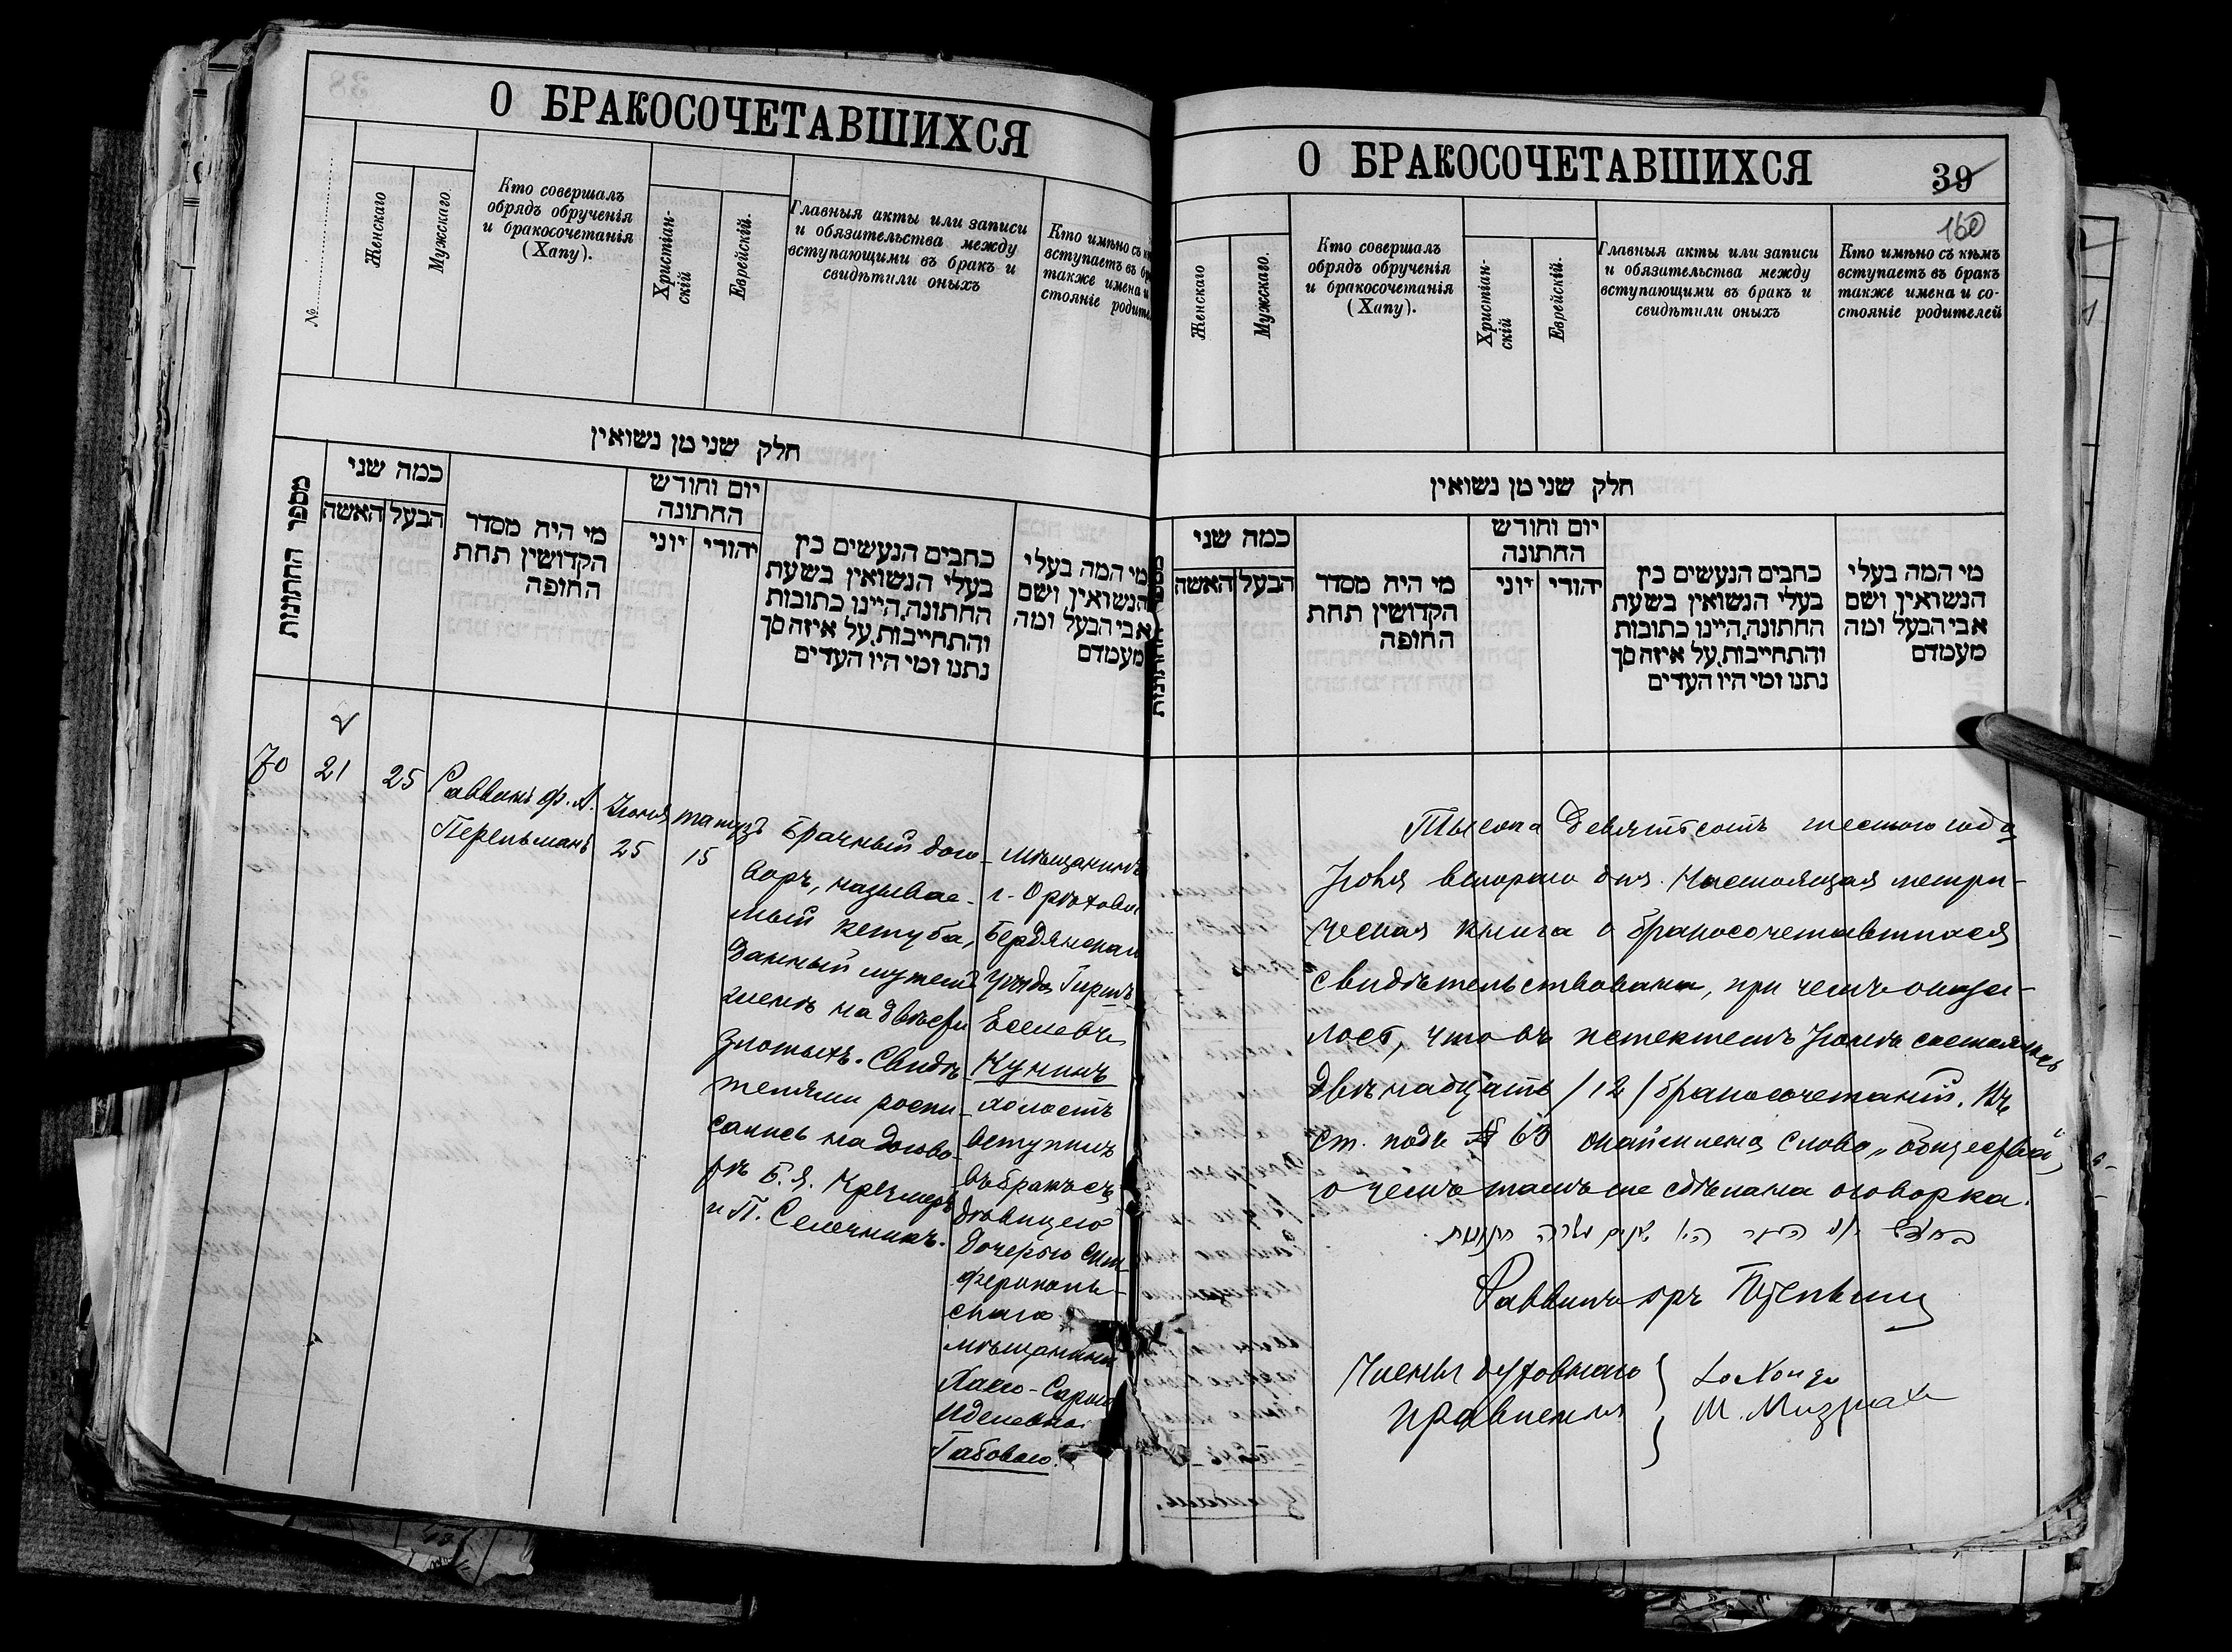 О БРАКОСОЧЕТАВШИХСЯ
№
Женскаго
Мужскаго.
Кто совершалъ
обрядъ обрученія
и бракосочетанія
(Хапу).
Христіан-
скій
Еврейскій.
Главныя акты или записи
и обязательства между
вступающими въ бракъ и
свидѣтили оныхъ
Кто имѣно съ
вступаетъ въ
также имена и
стояніе
חלק שני מן נשואין
מספר החתונות
כמה שני
האשה
הבעל
מי היה מסדר
הקדושין תחת
החופה
יום וחודש
החתונה
יוני
יהודי
כתבים הנעשים בין
בעלי הנשואין בשעת
החתונה, היינו כתובות
והתחייבות, על איזה סך
נתנו ומי היו העדים
מי המה בעלי
הנשואין ושם
אבי הבעל ומה
מעמדם
70
21
25
Раввинъ Ф. А.
Перельманъ
Іюня
25
тамузъ
15
Брачный дого-
воръ, называе-
мый кетуба,
данный
на двѣсти
злотыхъ. Свидѣ-
телями роспи-
сались на догово-
рѣ Б. Я. Кремеръ
и П.
мѣщанинъ
г. Орѣхова
Бердянскаго
уѣзда Гиршъ
Кунинъ
холостъ
вступилъ
въ бракъ съ
дѣвицею
дочерью Сим-
ферополь-
скаго
мѣщанина
Сарою
Габовою.
О БРАКОСОЧЕТАВШИХСЯ
39
160
Женскаго
Мужскаго.
Кто совершалъ
обрядъ обрученія
и бракосочетанія
(Хапу).
Христіан-
скій
Еврейскій.
Главныя акты или записи
и обязательства между
вступающими въ бракъ и
свидѣтили оныхъ
Кто имѣно съ кѣмъ
вступаетъ въ бракъ
также имена и со-
стояніе родителей
חלק שני מן נשואין
כמה שני
האשה
הבעל
מי היה מסדר
הקדושין תחת
החופה
יום וחודש
החתונה
יוני
יהודי
כתבים הנעשים בין
בעלי הנשואין בשעת
החתונה, היינו כתובות
והתחייבות, על איזה סך
נתנו ומי היו העדים
מי המה בעלי
הנשואין ושם
אבי הבעל ומה
מעמדם
Тысяча девятьсотъ шестого года
Іюля второго дня. Настоящая метри-
ческая книга о бракосочетавшихся
свидѣтельствована, при чемъ оказа-
лось, что въ истекшемъ Іюнѣ состоялось
двѣнадцать /12/ бракосочетаній. Въ
ст. подъ № 63 слово
о чемъ тамъ же сдѣлана оговорка.
Раввинъ
Члены духовнаго
правленія